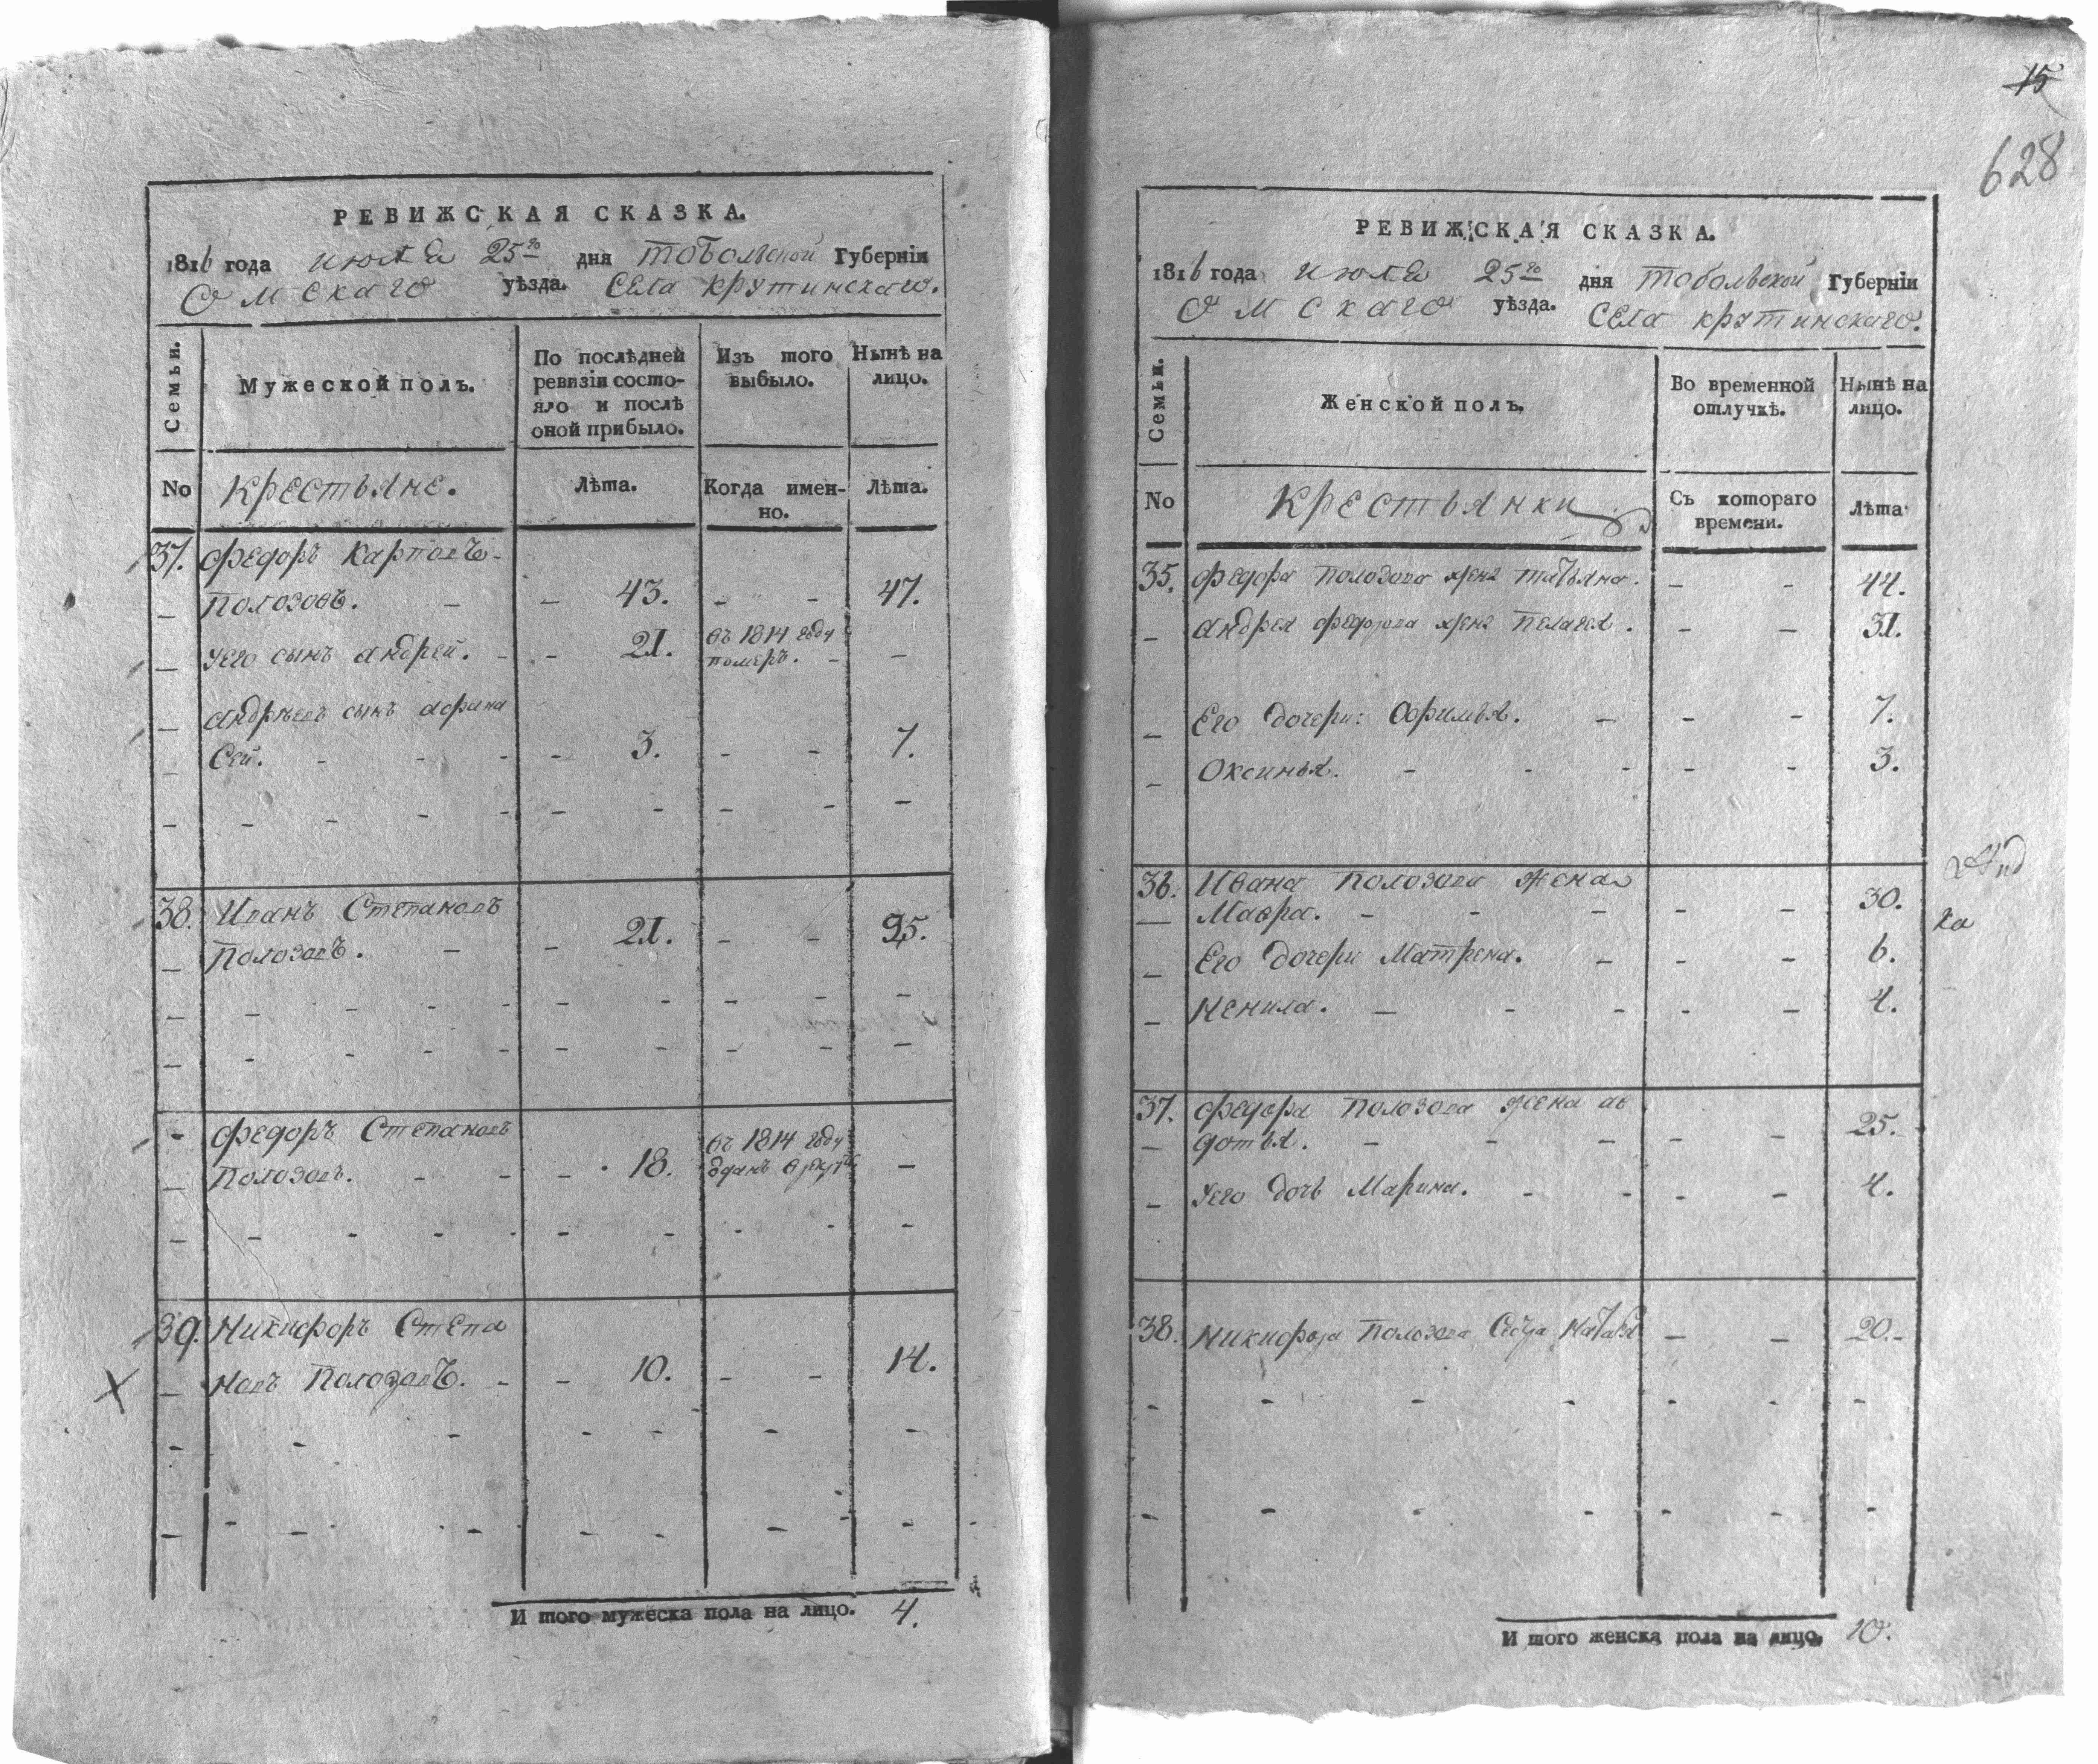 РЕВИЖСКАЯ СКАЗКА.
1816 года июля 25го дня Тобольской Губерніи
Омскаго уѣзда. Села Крутинскаго.
Семьи.
Мужеской полъ.
По послѣдней ревизіи состо-
яло и послѣ
оной прибыло.
Изъ того
выбыло.
Нынѣ на
лицо.
No
Крестьяне.
Лѣта.
Когда имен-
но.
Лѣта.
37. Федоръ Карповъ
Полозовъ. - - 43. - - 47.
Уего сынъ Андрей. - - 21. въ 1814 году
померъ. - -
Андрѣевъ сынъ Афана
сей. - - - - 3. - - 7.
38. Иванъ Степановъ
Полозовъ. - - 21. - - 25.
Федоръ Степановъ
Полозовъ. - - - 18. въ 1814 году
зданъ -
39. Никифоръ Степа
новъ Полозовъ. - - 10. - - 14.
И того мужеска пола на лицо. 4.
15
628
РЕВИЖСКАЯ СКАЗКА.
1816 года июля 25го дня Тобольской Губерніи
Омскаго уѣзда. Села Крутинскаго.
Семьи.
Женской полъ.
Во временной
отлучкѣ.
Нынѣ на
лицо.
No
Крестьянки
Съ котораго
времени.
Лѣта
35. Федора Полозова жена Татьяна. - - 44.
Андрея Федорова жена Пелагея. - - 31.
Его дочери: Офимья. - - - 7.
Оксинья. - - - - - 3.
36. Ивана Полозова жена
Мавра. - - - - - 30.
Его дочери Матрена. - - - 6.
Ненила. - - - - - 4.
37. Федора Полозова жена ав
дотья. - - - - - 25.
Уего дочь Марина. - - - - 4.
38. Никифора Полозова Наталья - - 20.
ка
И того женска пола на лицо. 10.